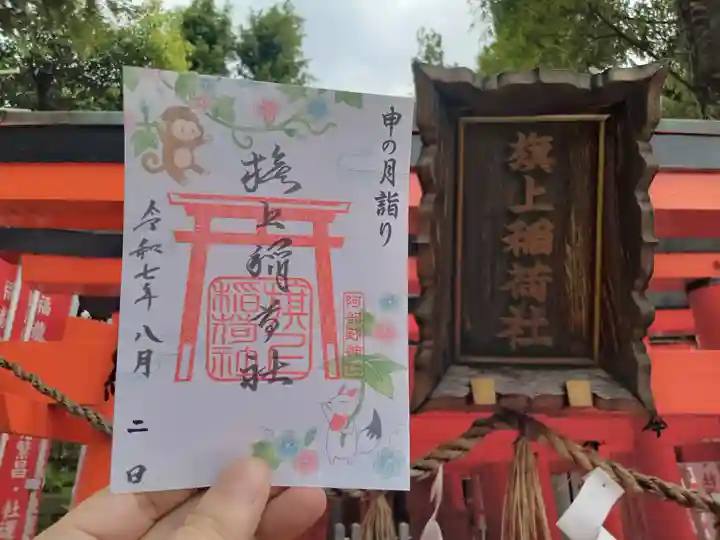 申の月詣り
旗上稲荷社
令和七年 八月 二日
旗上稲荷社
阿部野神社
旗上稲荷社
繁昌・社運